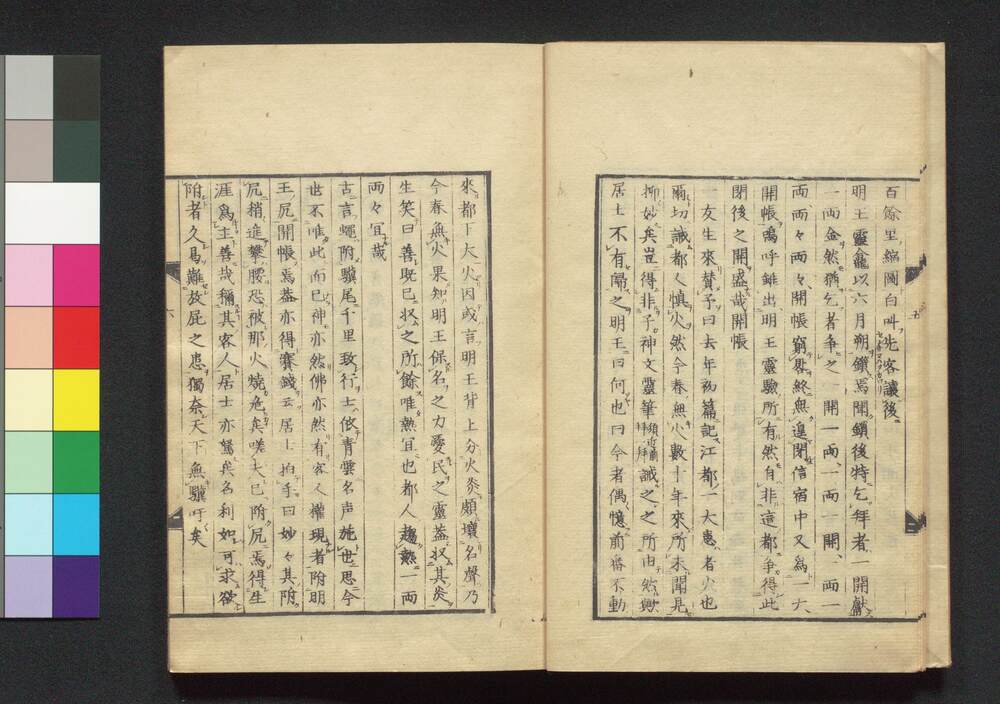 百餘里縮圖自叫先客讓後
明王靈龕以六月朔鑽焉開鎖後特乞拜者一開獻
一兩金然猶乞者爭之一開一兩一兩一開兩一
兩兩々兩々開帳窮畧終無遑閉信宿中又爲一大
開帳嗚呼雖出明王靈驗所有然自非這都爭得此
閉後之開盛哉開帳
一友生來贊予曰去年初篇記江都一大患者火也
爾切誡都人慎火然今春無火數十年來所未聞見
抑妙矣豈得非子神文靈筆誡之之所由然歟
居士不有歸之明王曰何也曰今者偶憶前番不動
五
來都下大火因或言明王背上分火炎頗壞名聲乃
今春無火果知明王保名之力愛民之靈蓋收其炎
生笑曰善既已收之所餘唯熱宜也都人趨熱一兩
兩々宜哉
古言蠅附驥尾千里致行士依青雲名声施世思今
世不唯此而已神亦然佛亦然有客人權現者附明
王尻開帳焉蓋亦得賽錢云居士拍手曰妙々其附
尻稍進攀腰恐被那火燒危矣嗟夫已附尻焉得生
涯爲主善哉稱其客人居士亦駑矣名利如可求欲
附者久焉難放屁之患獨奈天下無驥吁矣
六